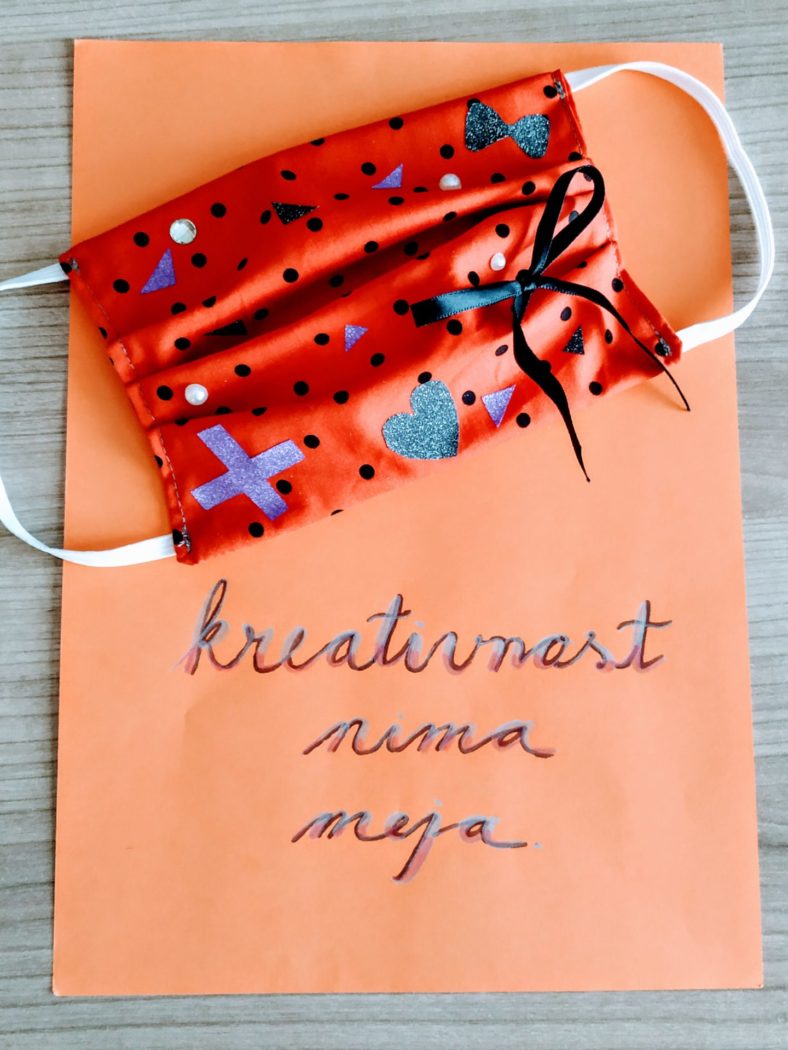 kreativnost
nima
meja.